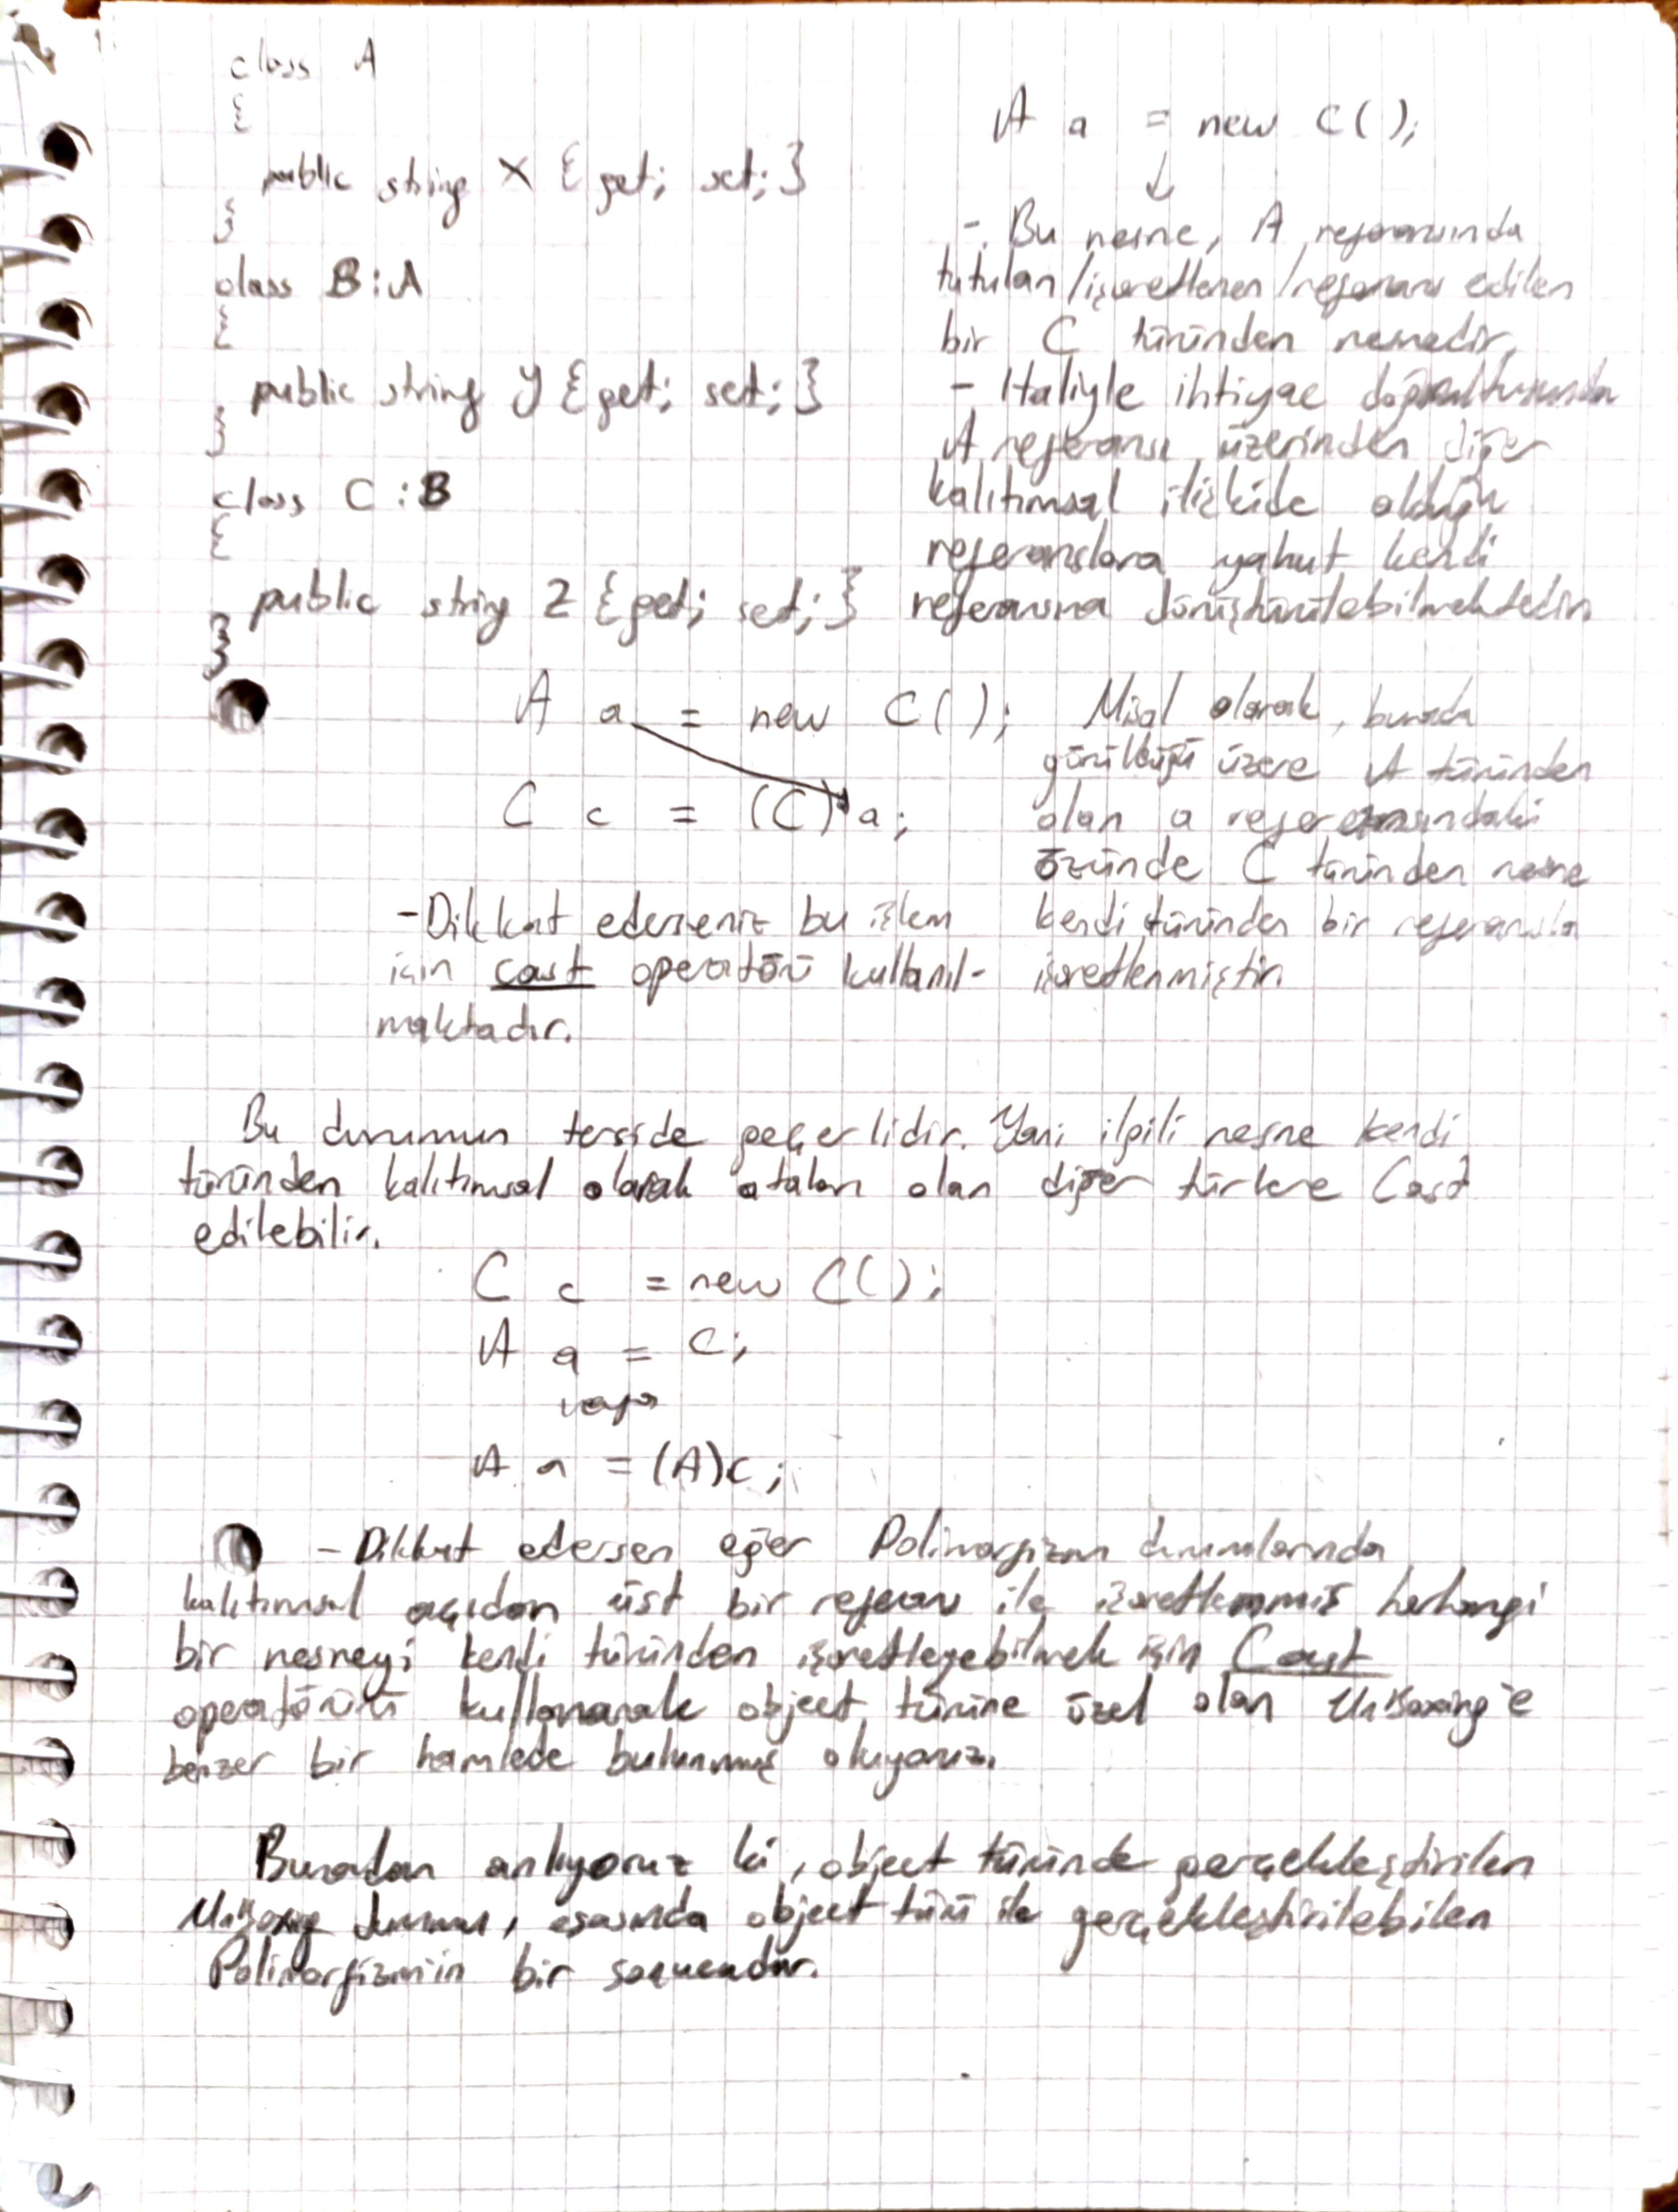 class A
{
public string X {get; set;}
}
class B:A
{
public string Y {get; set;}
}
class C:B
{
public string Z {get; set;}
}
A a = new C();
↓
- Bu nesne, A referansında
tutulan/işaretlenen/referans edilen
bir C türünden nesnedir.
- Haliyle ihtiyaç doğrultusunda
A referansı üzerinden diğer
kalıtımsal ilişkide olduğu
referanslara yahut kendi
referansına dönüştürülebilmektedir.
A a = new C();
C c = (C) a;
Misal olarak, burada
görüldüğü üzere A türünden
olan a referansındaki
özünde C türünden nesne
kendi türünden bir referansla
işaretlenmiştir.
-Dikkat ederseniz bu işlem
için cast operatörü kullanıl-
maktadır.
Bu durumun terside geçerlidir. Yani ilgili nesne kendi
türünden kalıtımsal olarak ataları olan diğer türlere Cast
edilebilir.
C c = new C();
A a = c;
veya
A a = (A)c;
- Dikkat edersen eğer Polimorfizm durumlarında
kalıtımsal açıdan üst bir referans ile işaretlenmiş herhangi
bir nesneyi kendi türünden işaretleyebilmek için Cast
operatörünü kullanarak object türüne özel olan UnBoxing'e
benzer bir hamlede bulunmuş oluyoruz.
Buradan anlıyoruz ki, object türünde gerçekleştirilen
UnBoxing durumu, esasında object türü ile gerçekleştirilebilen
Polimorfizmin bir sonucudur.